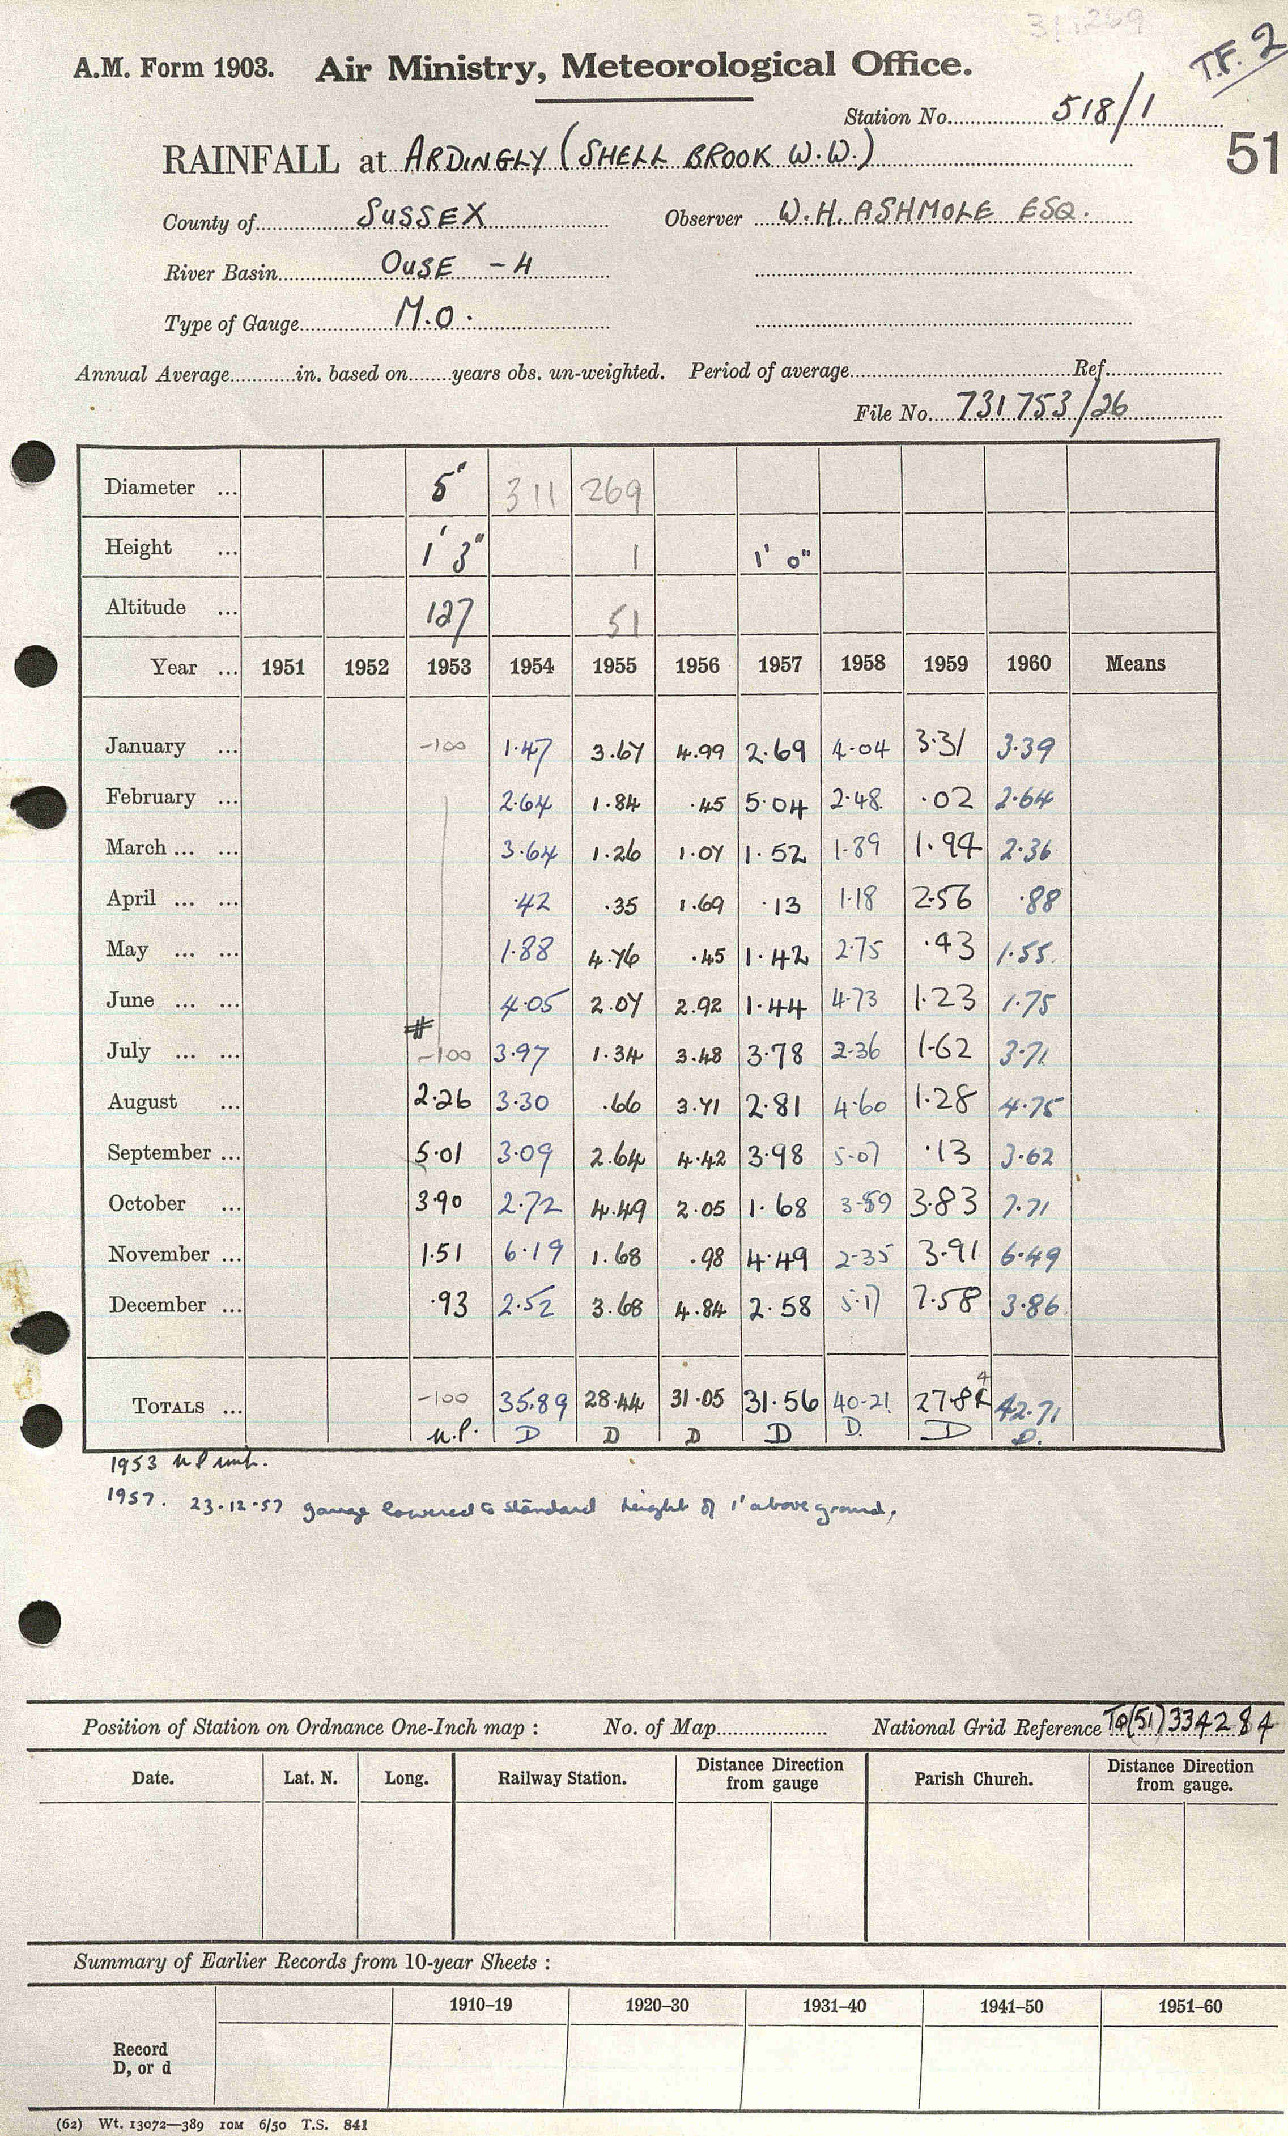 31.269
T.F. 2
A.M. Form 1903. Air Ministry, Meteorological Office.
Station No. 518/1
RAINFALL at ARDINGLY (SHELL BROOK W.W.) 51
County of SUSSEX Observer W.H. ASHMOLE ESQ.
River Basin OUSE - H
Type of Gauge M.O.
Annual Average in. based on years obs. un-weighted. Period of average Ref.
File No. 731753/26
Diameter ... 5" 311 269
Height ... 1' 3" 1 1' 0"
Altitude ... 127 51
Year ... 1951 1952 1953 1954 1955 1956 1957 1958 1959 1960 Means
January ... -100 1.47 3.67 4.99 2.69 4.04 3.31 3.39
February ... 2.64 1.84 .45 5.04 2.48 .02 2.64
March ... ... 3.64 1.26 1.07 1.52 1.89 1.94 2.36
April ... ... .42 .35 1.69 .13 1.18 2.56 .88
May ... ... 1.88 4.76 .45 1.42 2.75 .43 1.55
June ... ... 4.05 2.07 2.92 1.44 4.73 1.23 1.75
July ... ... # -100 3.97 1.34 3.48 3.78 2.36 1.62 3.71
August ... 2.26 3.30 .66 3.71 2.81 4.60 1.28 4.75
September ... 5.01 3.09 2.64 4.42 3.98 5.07 .13 3.62
October ... 3.90 2.72 4.49 2.05 1.68 3.59 3.83 7.71
November ... 1.51 6.19 1.68 .98 4.49 2.35 3.91 6.49
December ... .93 2.52 3.68 4.84 2.58 5.17 7.58 3.86
TOTALS ... -100 35.89 28.44 31.05 31.56 40.21 27.84 42.71
n.p. D D D D D. D D.
1953 n p
1957. 23.12.57 gauge lowered to standard height of 1' above ground.
Position of Station on Ordnance One-Inch map : No. of Map National Grid Reference TQ(51)334284
Date. Lat. N. Long. Railway Station. Distance from gauge Direction Parish Church. Distance Direction from gauge.
Summary of Earlier Records from 10-year Sheets :
1910–19 1920–30 1931–40 1941–50 1951–60
Record
D, or d
(62) Wt. 13072—389 10M 6/50 T.S. 841